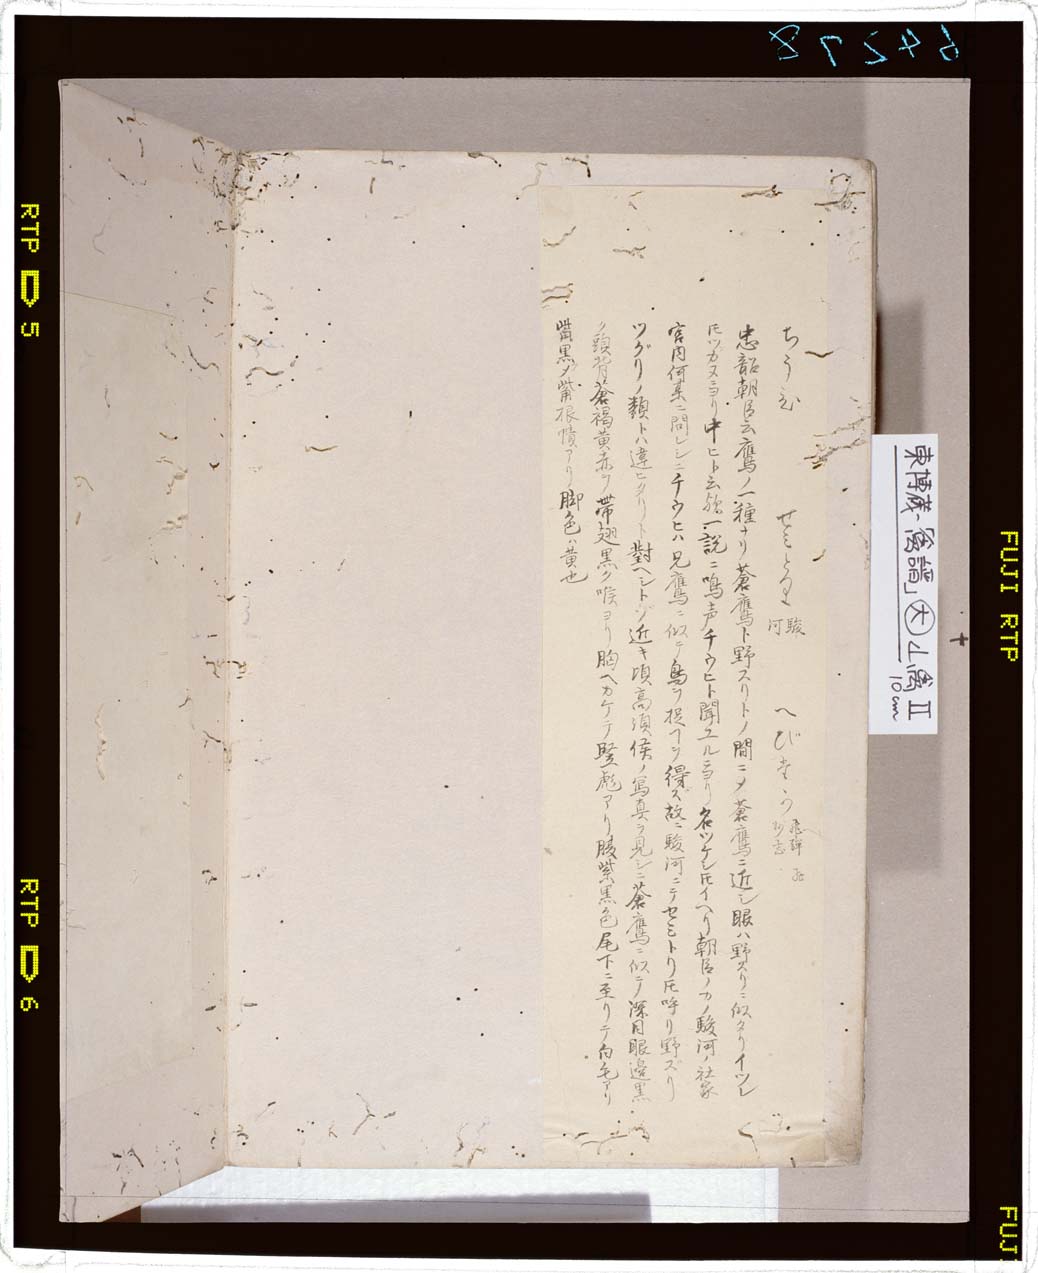 ちうひ　せみとり 駿河　へびたか
忠韶朝臣云鷹ノ一種ナリ蒼鷹ト野スリトノ間ニメ蒼鷹ニ近シ眼ハ野スリニ似タリイツレ
𪜈ツカヌヨリ中ヒト云 一説ニ鳴声チウヒト聞ユルヨリ名ツケシ𪜈イヘリ朝臣ノカノ駿河ノ社家
宮内何某ニ問レシニチウヒハ兄鷹ニ似テ鳥ヲ捉フヿ得ズ故ニ駿河ニテセミトリ𪜈呼リ野ズリ
ツグリノ類トハ違ヒタリト對ヘシトゾ近キ頃高須侯ノ写真ヲ見シニ蒼鷹ニ似テ深目眼邉黒
ク頭背蒼褐黄赤ヲ帯翅黒ク喉ヨリ胸ヘカケテ竪彪アリ腹紫黒色尾下ニ至リテ白毛アリ
觜黒ク觜根 アリ脚色ハ黄也
東博蔵「禽譜」大 山禽 II
10cm
64278
RTP 5
RTP 6
FUJI RTP
FUJI